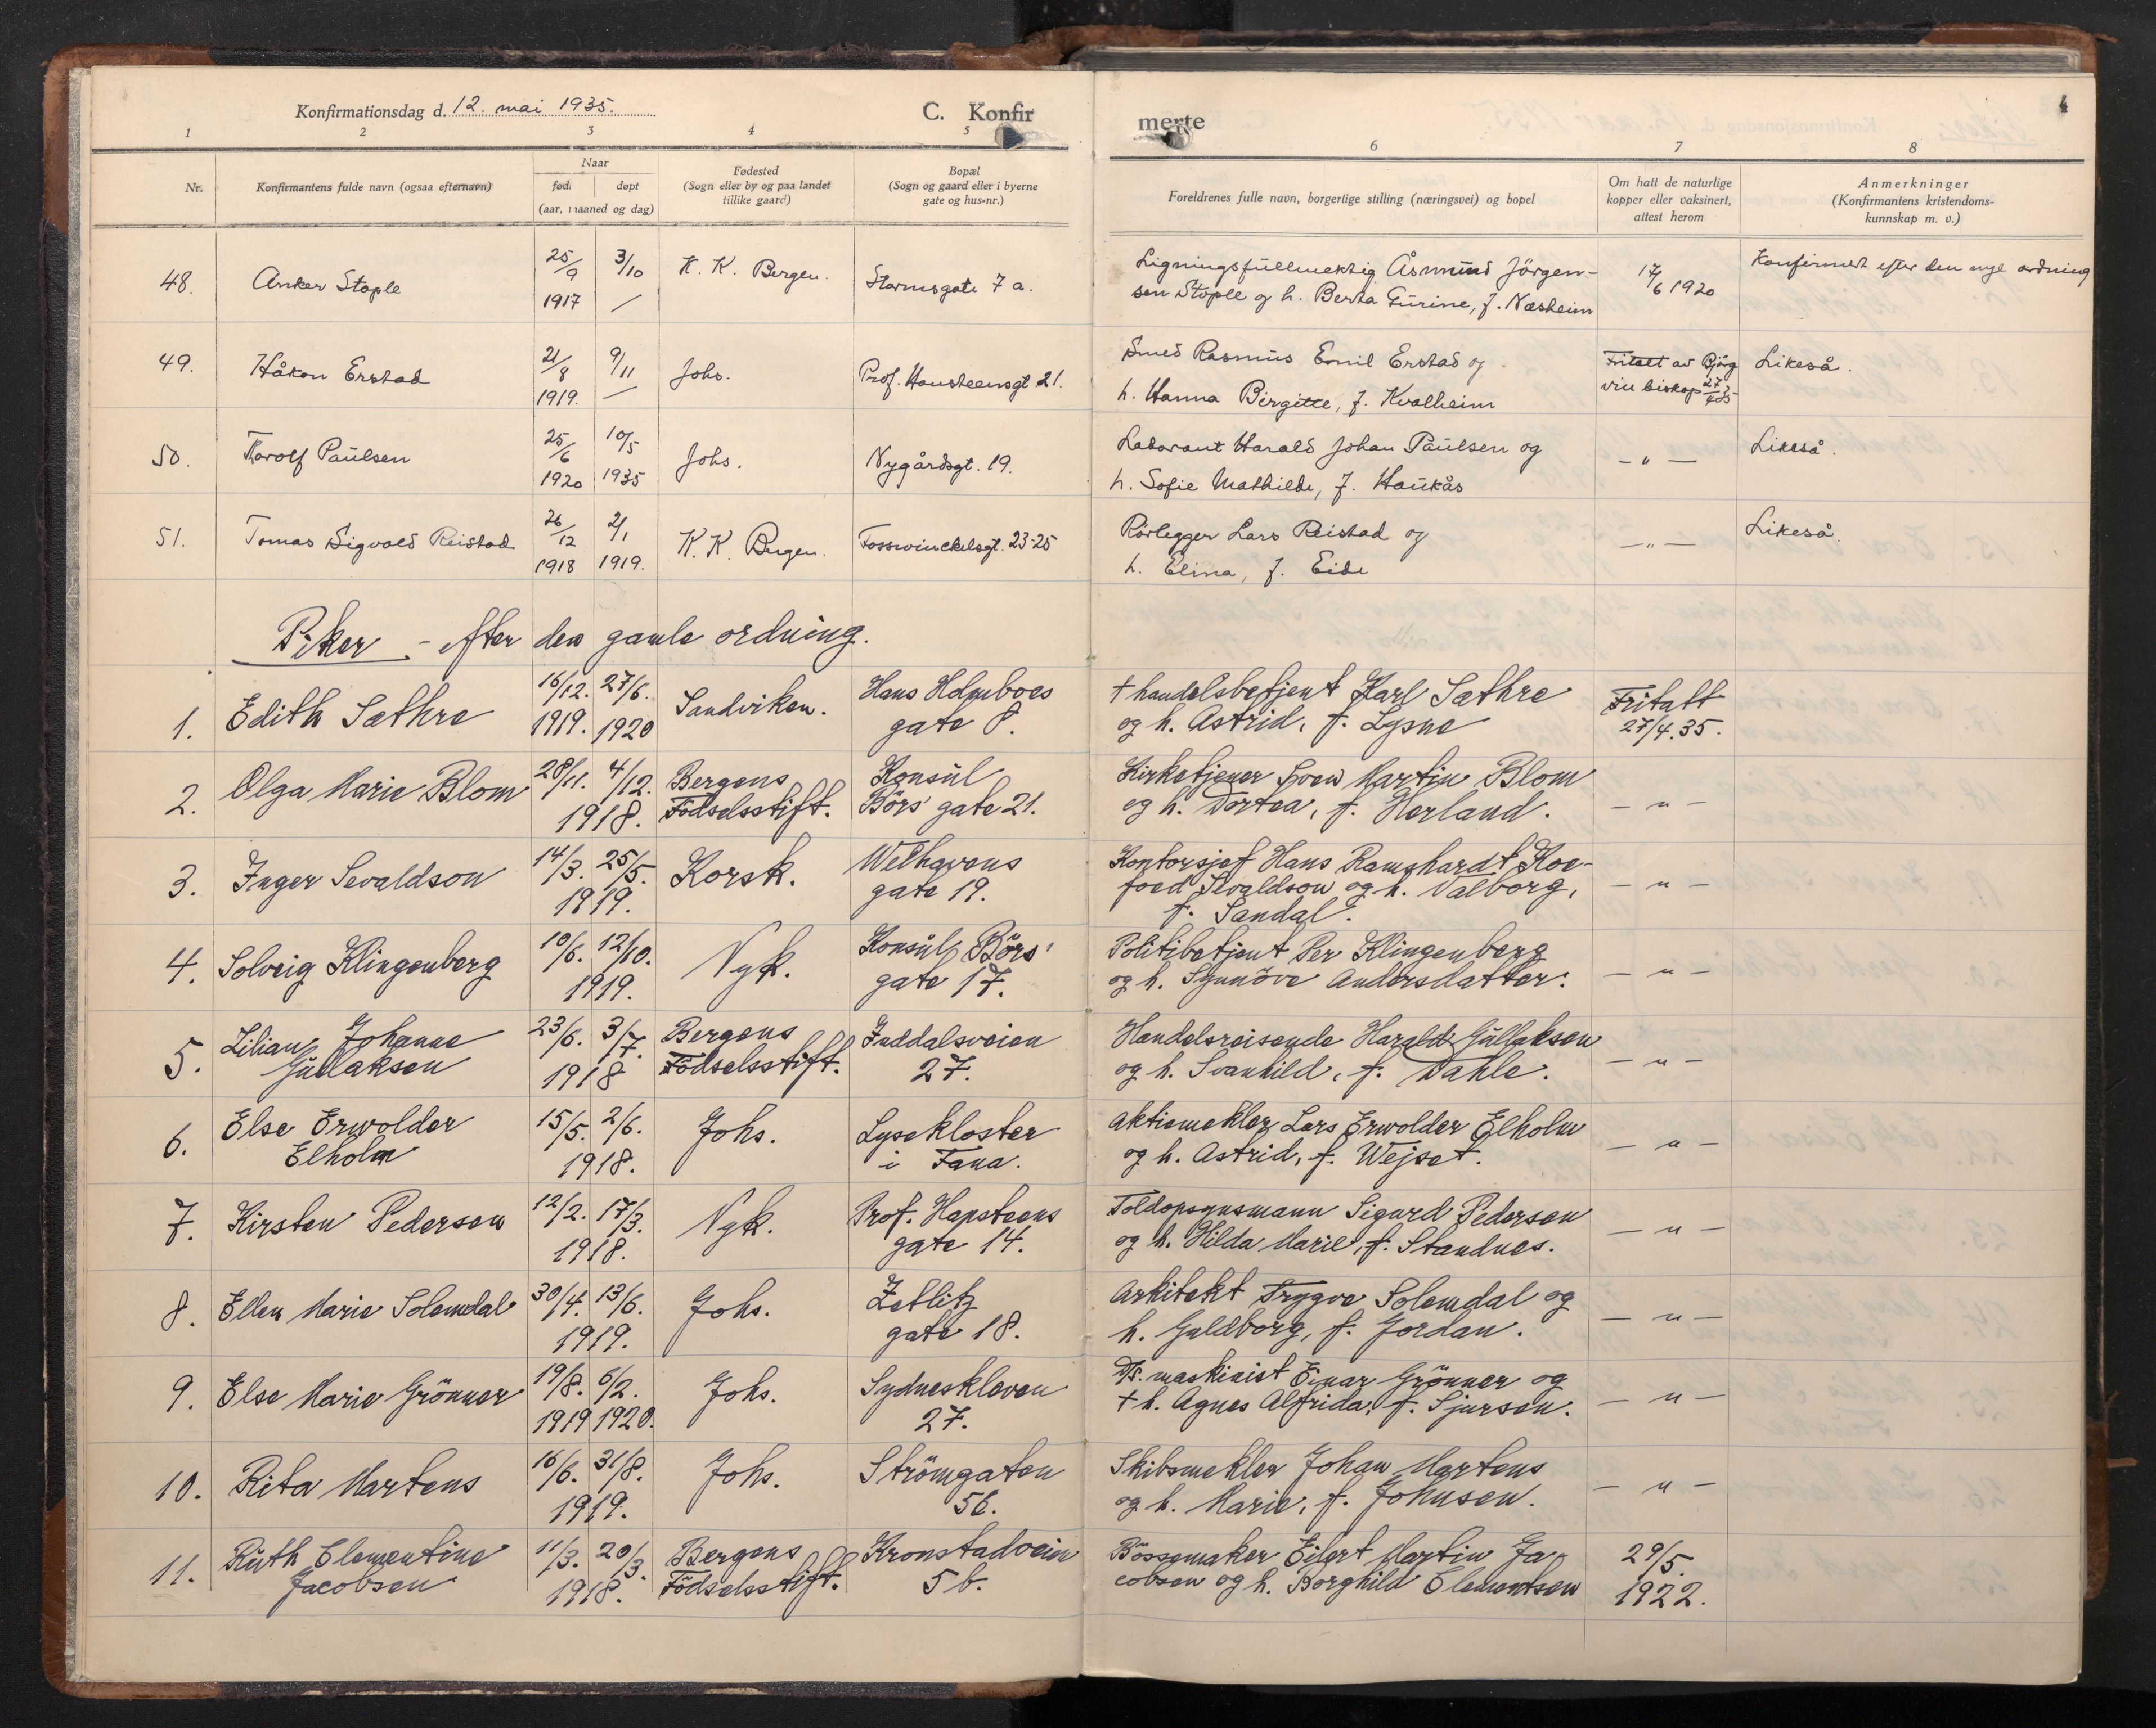 Konfirmationsdag d. 12. mai 1935.
C. Konfirmerte
4
1 2 3 4 5 6 7 8
Nr.
Konfirmantens fulde navn (ogsaa efternavn)
Naar
født døpt
(aar, maaned og dag)
Fødested
(Sogn eller by og paa landet
tillike gaard)
Bopæl
(Sogn og gaard eller i byerne
gate og hus-nr.)
Foreldrenes fulle navn, borgerlige stilling (næringsvei) og bopel
Om hatt de naturlige
kopper eller vaksinert,
attest herom
Anmerkninger
(Konfirmantens kristendoms-
kunnskap m. v.)
48. Anker Stople 25/9 1917 3/10 — K. K. Bergen. Stormsgate 7 a.
Ligningsfullmektig Åsmund Jörgen-
sen Stople og h. Berta Gurine, f. Næsheim
17/6 1920
Konfirmert efter den nye ordning
49. Håkon Erstad 21/8 1919. 9/11 — Johs. Prof. Hansteensgt 21.
Smed Rasmus Emil Erstad og
h. Hanna Birgitte, f. Kvalheim
Fritatt av Bjørg
vin biskop 27/4 35
Likeså.
50. Torolf Paulsen 25/6 1920 10/5 1935 Johs. Nygårdsgt. 19.
Laborant Harald Johan Paulsen og
h. Sofie Mathilde, f. Haukås
— " —
Likeså.
51. Tomas Sigvald Reistad 26/12 1918 2/1 1919. K. K. Bergen. Fosswinckelsgt. 23-25
Rörlegger Lars Reistad og
h. Elina, f. Eide
— " —
Likeså.
Piker - efter den gamle ordning.
1. Edith Sæthre 16/12. 1919. 27/6. 1920 Sandviken. Hans Holmboes
gate 8.
† handelsbetjent Karl Sæthre
og h. Astrid, f. Lysne
Fritatt
27/4.35.
2. Olga Marie Blom 28/11. 4/12. 1918. Bergens
Födselsstift. Konsul
Börs' gate 21.
Kirketjener Sven Martin Blom
og h. Dortea, f. Herland.
— " —
3. Inger Sevaldson 14/3. 25/5. 1919. Korsk. Welhavens
gate 19.
Kontorsjef Hans Ramshardt Koe-
foed Sevaldson og h. Valborg,
f. Sandal.
— " —
4. Solveig Klingenberg 10/6. 12/10. 1919. Nyk. Konsul Börs'
gate 17.
Politibetjent Per Klingenberg
og h. Synnöve Andersdatter.
— " —
5. Lilian Johanne
Gullaksen 23/6. 3/7. 1918 Bergens
Födselsstift. Inddalsveien
27.
Handelsreisende Harald Gullaksen
og h. Svanhild, f. Dahle.
— " —
6. Else Erwolder
Elholm 15/5. 2/6. 1918. Johs. Lysekloster
i Fana.
Aktiemekler Lars Erwolder Elholm
og h. Astrid, f. Wejset.
— " —
7. Kirsten Pedersen 12/2. 17/3. 1918. Nyk. Prof. Hansteens
gate 14.
Toldopsynsmann Sigurd Pedersen
og h. Hilda Marie, f. Standnes.
— " —
8. Ellen Marie Solemdal 30/4. 13/6. 1919. Johs. Zetlitz
gate 18.
Arkitekt Trygve Solemdal og
h. Guldborg, f. Jordan.
— " —
9. Else Marie Grönner 19/8. 1919 6/2. 1920. Johs. Sydneskleven
27.
D/s. maskinist Einar Grönner og
† h. Agnes Alfrida, f. Sjursen.
— " —
10. Rita Martens 16/6. 31/8. 1919. Johs. Strömgaten
56.
Skibsmekler Johan Martens
og h. Marie, f. Johnsen.
— " —
11. Ruth Clementine
Jacobsen 11/3. 20/3. 1918. Bergens
Födselsstift. Kronstadveien
5 b.
Bössemaker Eilert Martin Ja
cobsen og h. Borghild Clementsen
29/5.
1922.